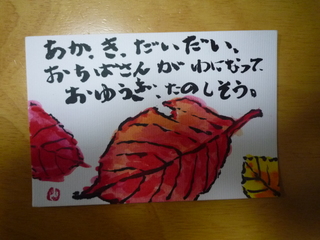 あか、き、だいだい、
おちばさんがわになって、
おゆうぎ、たのしそう。